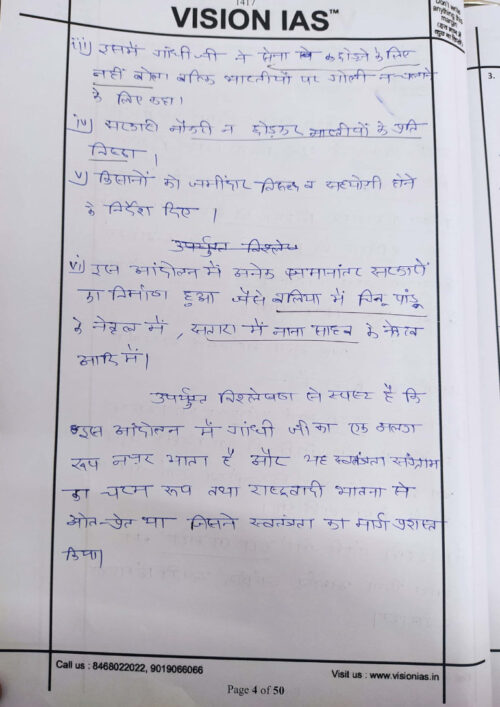 1417
VISION IAS™
Don't write
anything this
margin
3.
iii) इसमें गांधी जी ने सेना को छोड़ने के लिए
नहीं बोला बल्कि भारतीयों पर गोली न चलाने
के लिए कहा।
iv) सरकारी नौकरी न छोड़कर भारतीयों के प्रति
निष्ठा।
v) किसानों को जमींदार विरूद्ध व सहयोगी होने
के निर्देश दिए।
उपर्युक्त विश्लेष
vi) इस आंदोलन में अनेक समानांतर सरकारों
का निर्माण हुआ जैसे बलिया में चित्तू पांडू
के नेतृत्व में, सतारा में नाना साहब के नेतृत्व
आदि में।
उपर्युक्त विश्लेषण से स्पष्ट है कि
इस आंदोलन में गांधी जी का एक अलग
रूप नजर आता है और यह स्वतंत्रता संग्राम
का चरम रूप तथा राष्ट्रवादी भावना से
ओत-प्रोत था जिसने स्वतंत्रता का मार्ग प्रशस्त
किया।
Call us : 8468022022, 9019066066
Visit us : www.visionias.in
Page 4 of 50